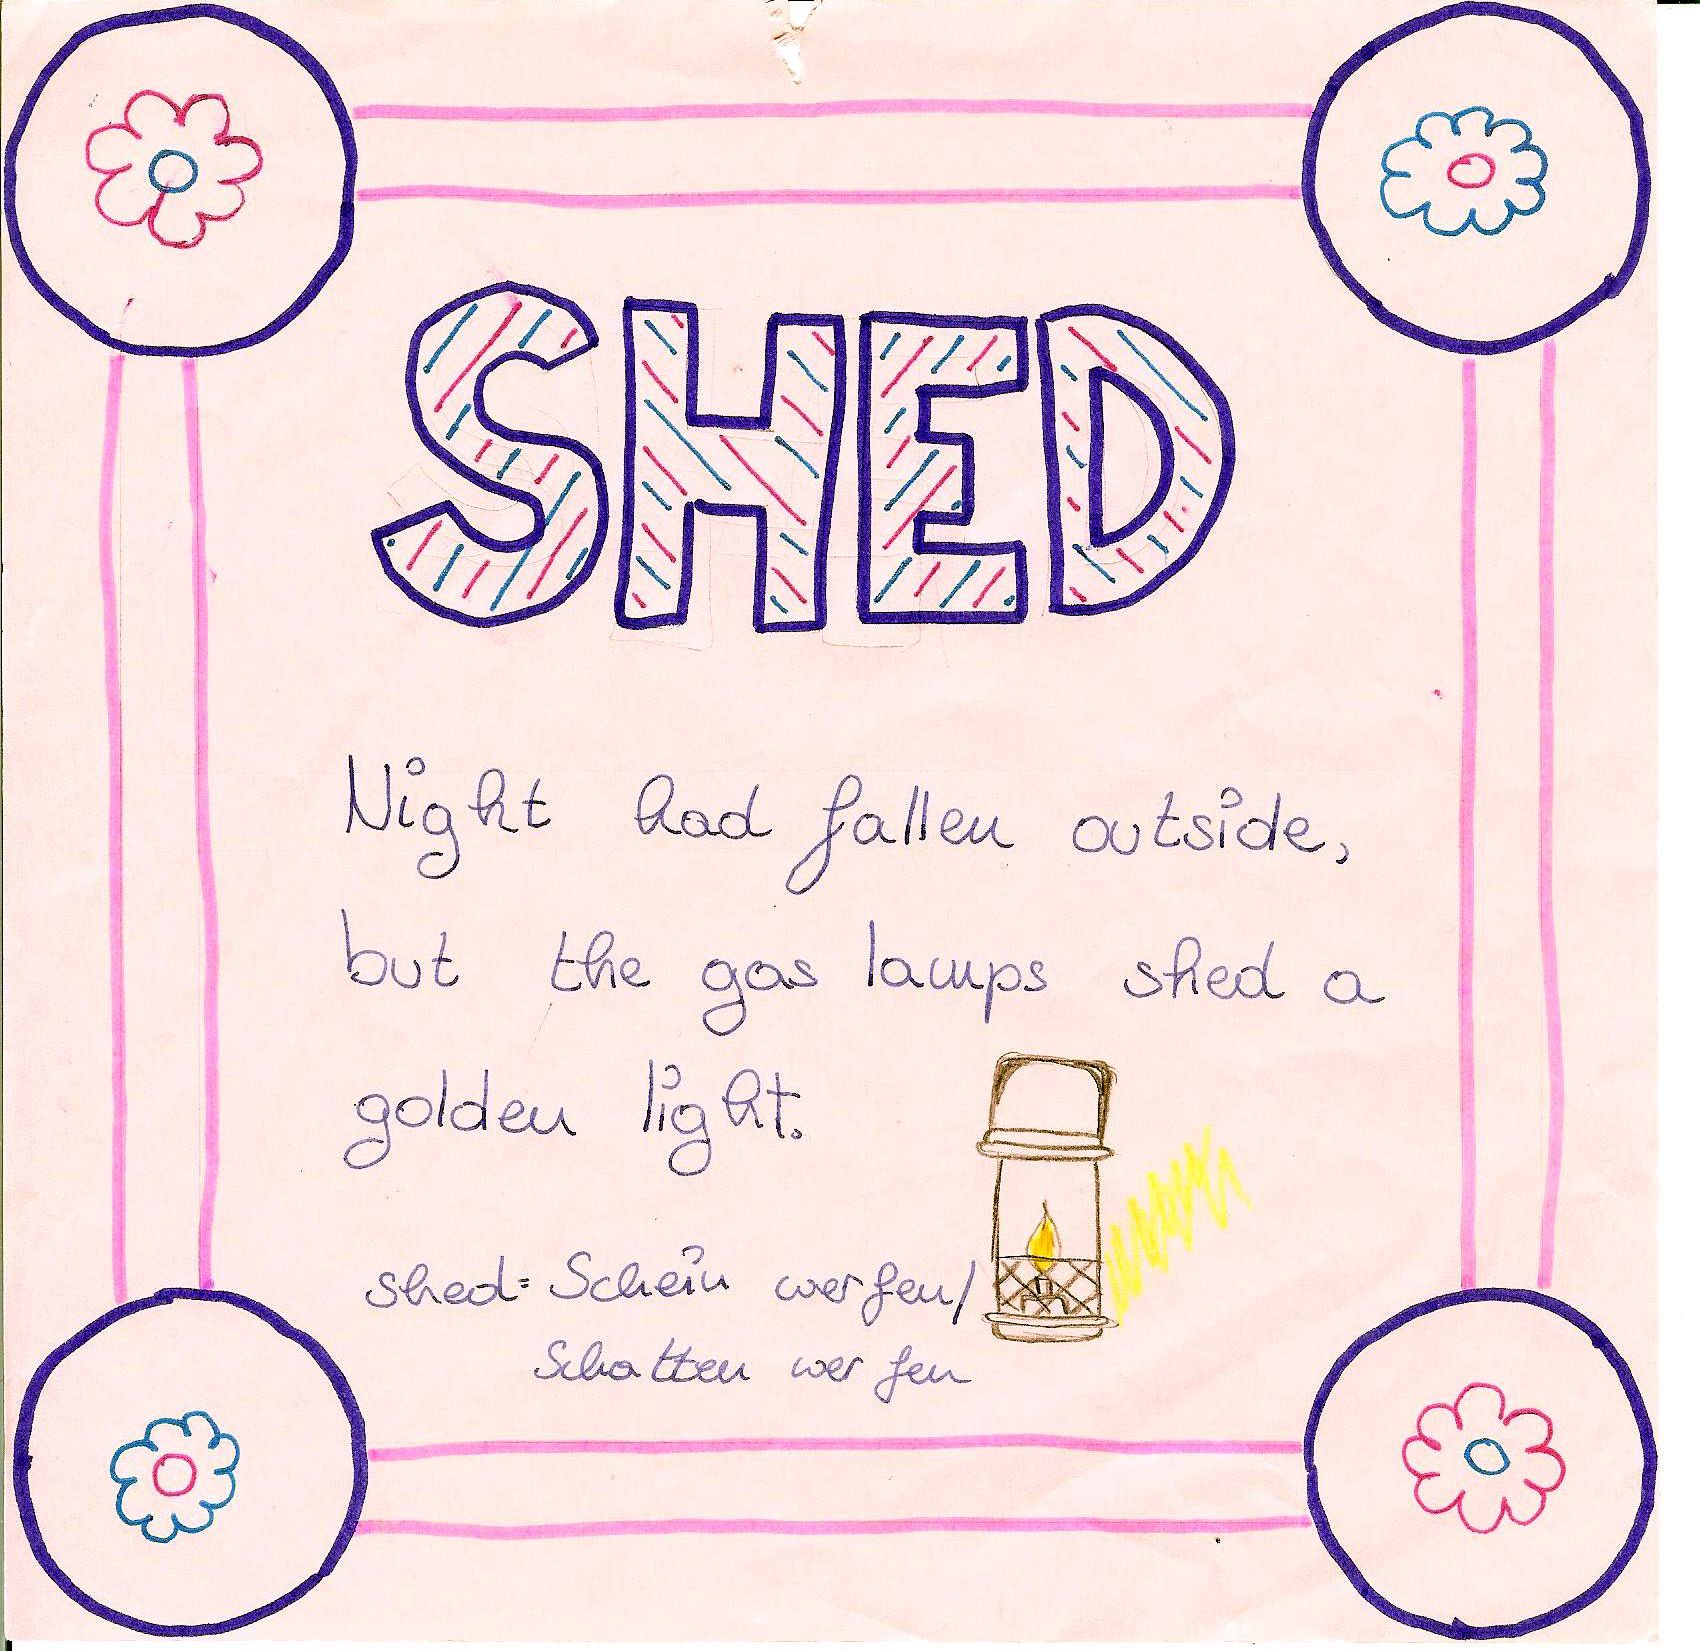 SHED
Night had fallen outside,
but the gas lamps shed a
golden light.
shed= Schein werfen/
Schatten werfen